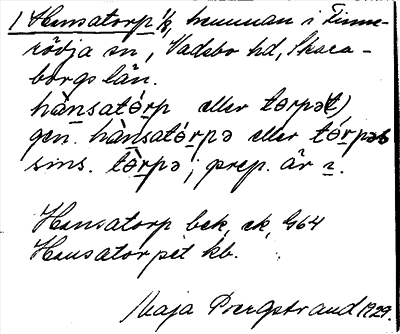 1 Hensatorp 1/2, hemman i Finne-
rödja sn, Vadsbo hd, Skara-
borgs län.
hànsatór̲p eller tor̲pət)
gen. hànsatór̲pə eller tór̲pəs
sms. tòr̲pə; prep. är ı.
Hensatorp bek, ek, 964
Hensatorpet kb.
Maja Bergstrand 1929.